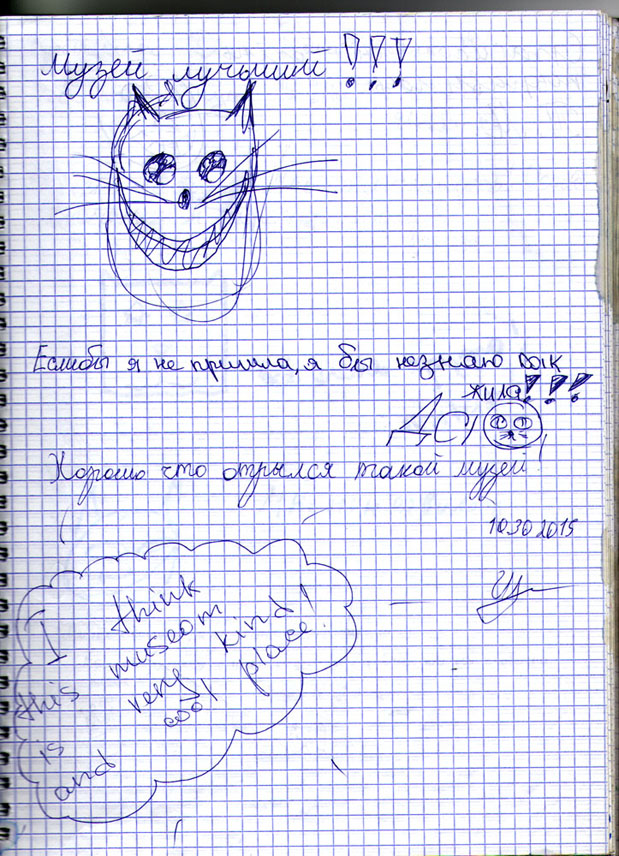 Музей лучьший !!!
Еслибы я не пришла, я бы незнаю как
жила!!!
Да
Хорошо что отрылся такой музей!
10.30 2015
I think
this museom
is very kind!
and cool place!